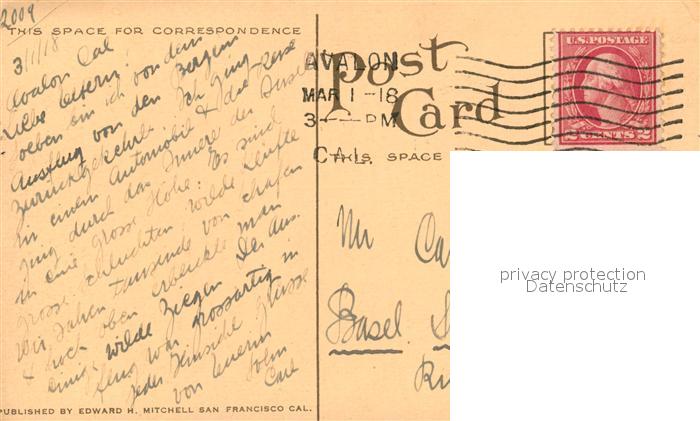 2009
THIS SPACE FOR CORRESPONDENCE
3/1/18
Avalon Cal
Liebe Eltern!
Soeben bin ich von dem
Ausflug von den Bergen
zurückgekehrt. Ich ging
in einem Automobil & die Reise
ging durch das Innere der Insel
in eine grosse Höhe. Es sind
grosse Schluchten, wilde
Wir sahen tausende von Schafen
& hoch oben erblickte man
einige wilde Ziegen. Der Aus-
flug war grossartig in
jeder Hinsicht. Grüsse
von Euerm Sohn
Carl
PUBLISHED BY EDWARD H. MITCHELL SAN FRANCISCO CAL.
Post Card
THIS SPACE
AVALON
MAR 1-18
3- PM
CAL.
U.S. POSTAGE
2 CENTS 2
Mr Ca
Basel S
privacy protection
Datenschutz